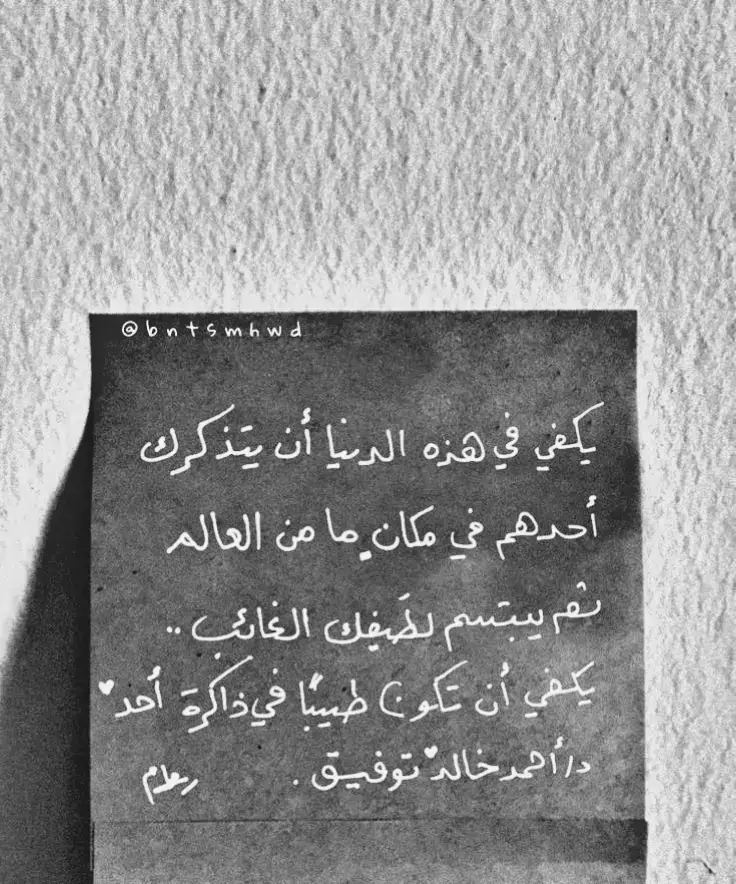 @bntsmhwd
يكفي في هذه الدنيا أن يتذكرك
أحدهم في مكانٍ ما من العالم
ثم يبتسم لطَيفك الغائب ..
يكفي أن تكون طيبًا في ذاكرة أحد♥
د/أحمد خالد♥توفيق .